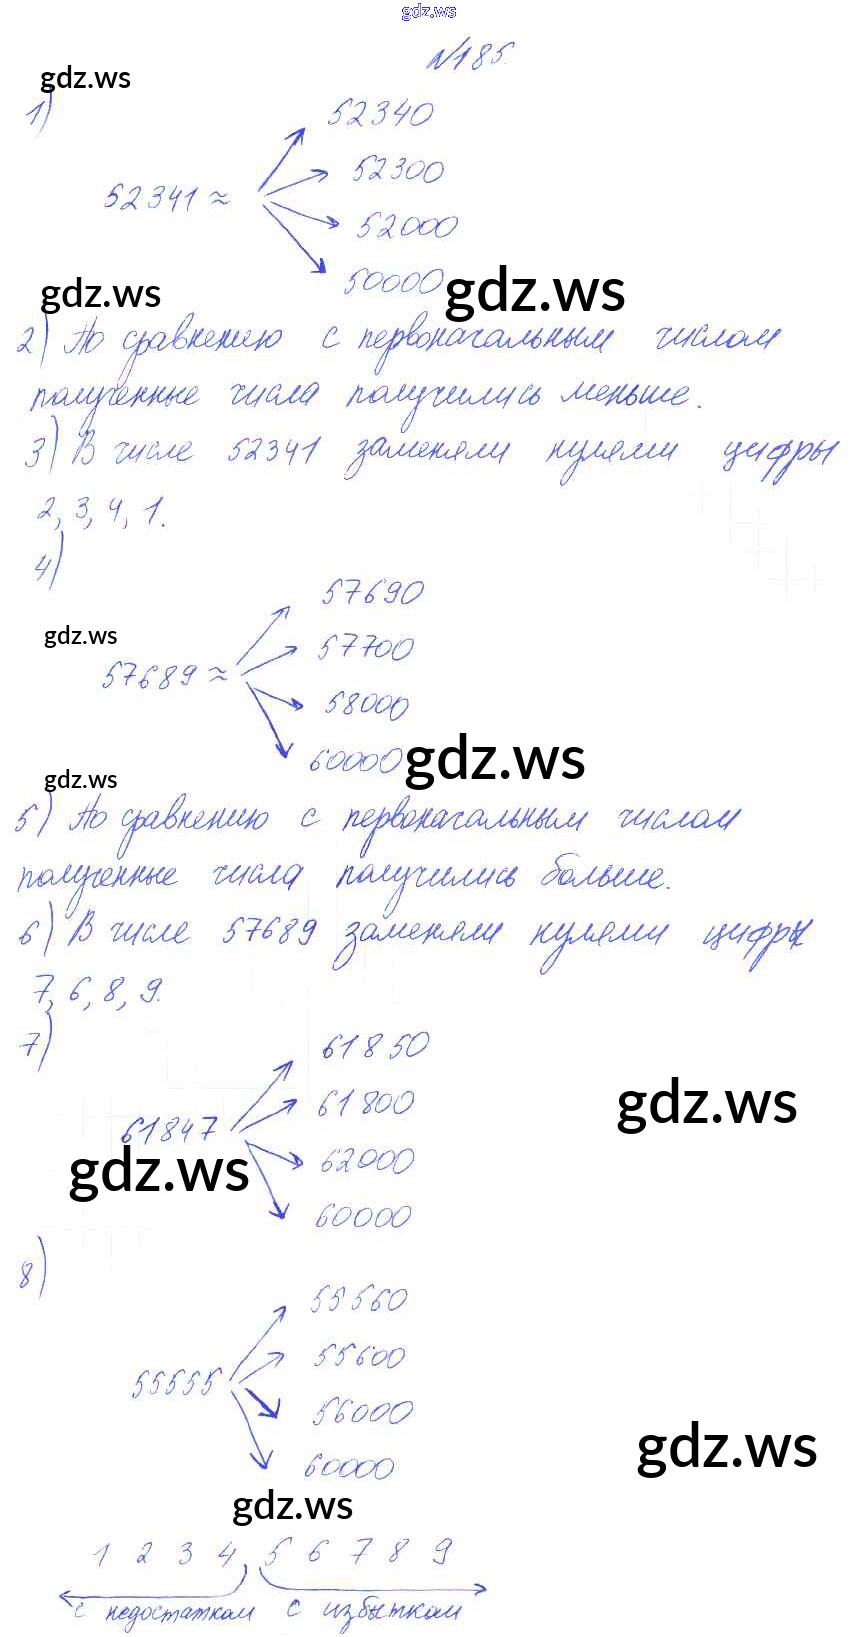 gdz.ws
№185.
gdz.ws
1)
52340
52300
52341 ≈
52000
50000
gdz.ws
gdz.ws
2) По сравнению с первоначальным числом
полученные числа получились меньше.
3) В числе 52341 заменяли нулями цифры
2, 3, 4, 1.
4)
57690
gdz.ws
57700
57689 ≈
58000
60000
gdz.ws
gdz.ws
5) По сравнению с первоначальным числом
полученные числа получились больше.
6) В числе 57689 заменяли нулями цифры
7, 6, 8, 9.
7)
61850
61800
gdz.ws
61847
62000
gdz.ws
60000
8)
55560
55600
55555
56000
gdz.ws
60000
gdz.ws
1 2 3 4 5 6 7 8 9
с недостатком с избытком